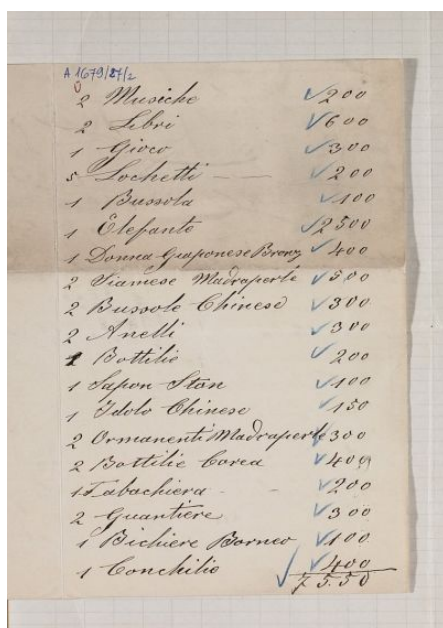 A 1679/27/2
2 Musiche 200
2 Libri 600
1 Gioco 300
5 Lochetti — 200
1 Bussola 100
1 Elefante 2500
1 Donna Giaponese Bronz 400
2 Siamese Madraperle 500
2 Bussole Chinese 300
2 Anelli 300
1 Bottilie 200
1 Sapon Stan 100
1 Idolo Chinese 150
2 Ormanenti Madraperle 300
2 Bottilie Corea 400
1 Tabachiera - - 200
2 Guantiere 300
1 Bichiere Borneo 100
1 Conchilio 400
7550